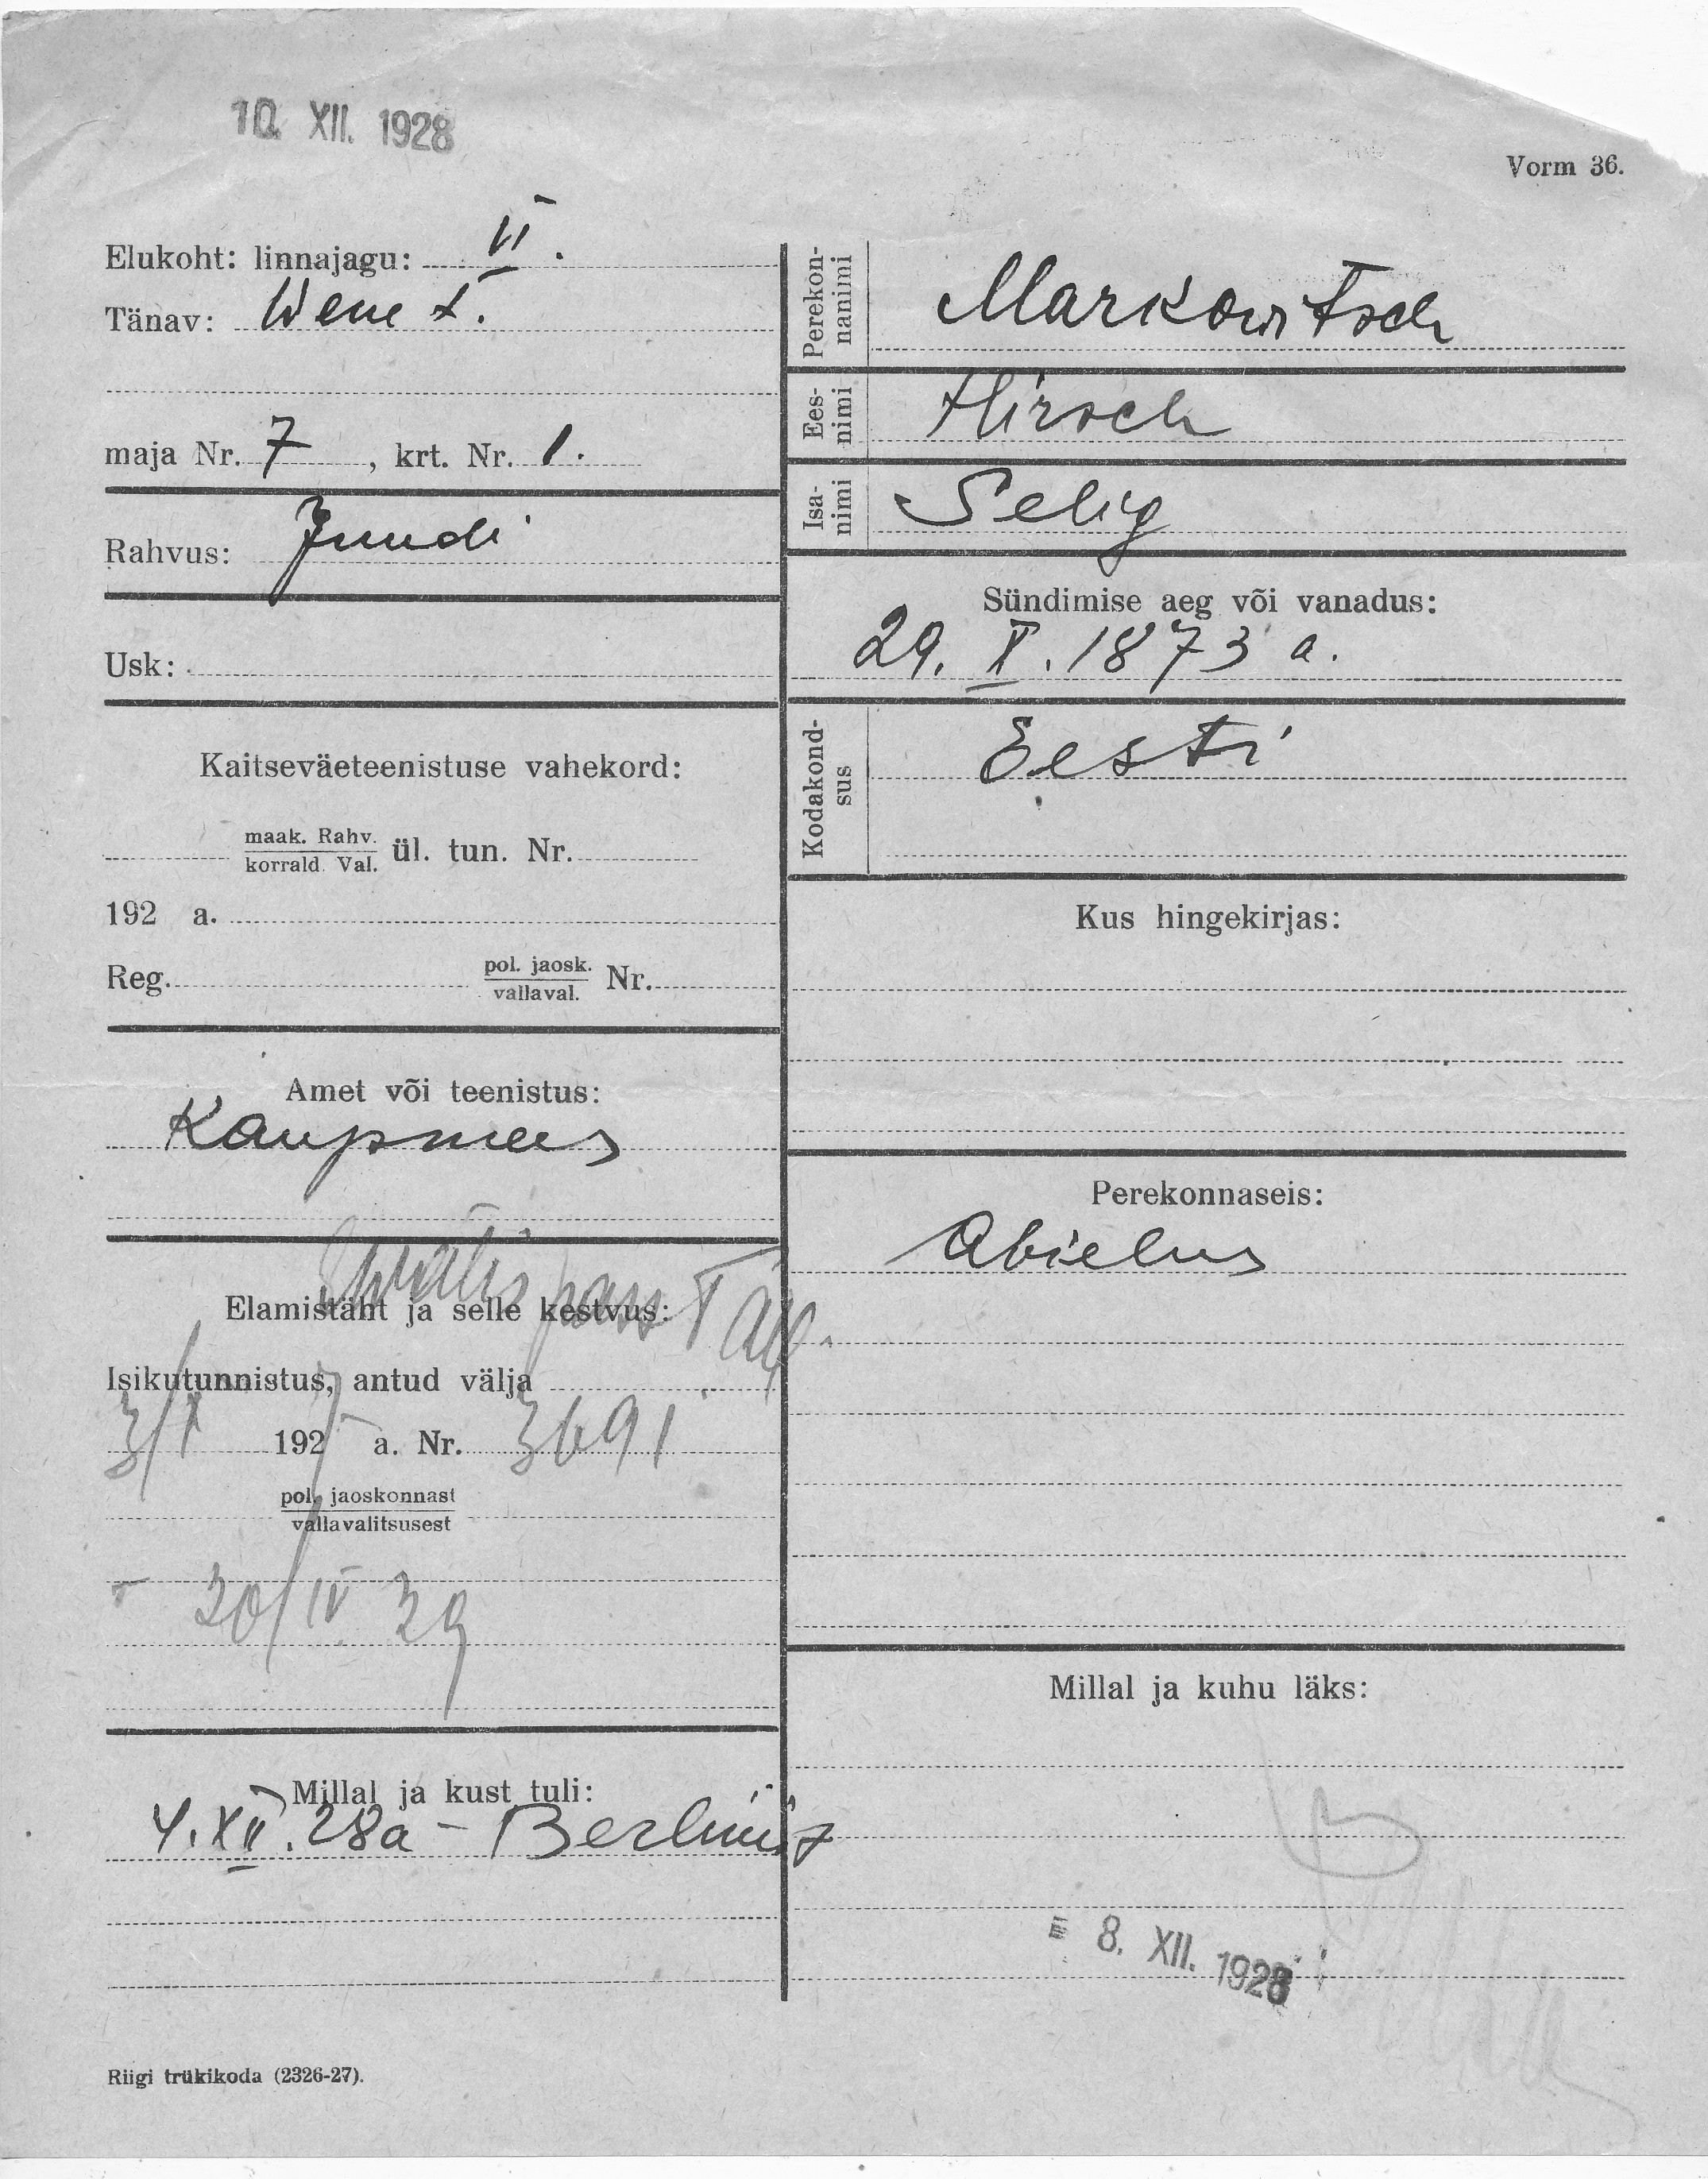 10. XII. 1928
Vorm 36.
Elukoht: linnajagu: VI.
Tänav: Wene t.
maja Nr. 7, krt. Nr. 1.
Rahvus: Juudi
Usk:
Kaitseväeteenistuse vahekord:
maak. Rahv.
korrald. Val. ül. tun. Nr.
192 a.
Reg. pol. jaosk.
vallaval. Nr.
Amet või teenistus:
Kaupmees
välispass Tall.
Elamistäht ja selle kestvus:
Isikutunnistus, antud välja
3/X 192 a. Nr. 3691
pol. jaoskonnast
vallavalitsusest
IV 29
Millal ja kust tuli:
4. XII. 28a – Berliinist
Riigi trükikoda (2326-27).
Perekon-
nanimi
Markowitsch
Ees-
nimi
Hirsch
Isa-
nimi
Selig
Sündimise aeg või vanadus:
29. X. 1873 a.
Kodakond-
sus
Eesti
Kus hingekirjas:
Perekonnaseis:
Abielus
Millal ja kuhu läks:
8. XII. 1928